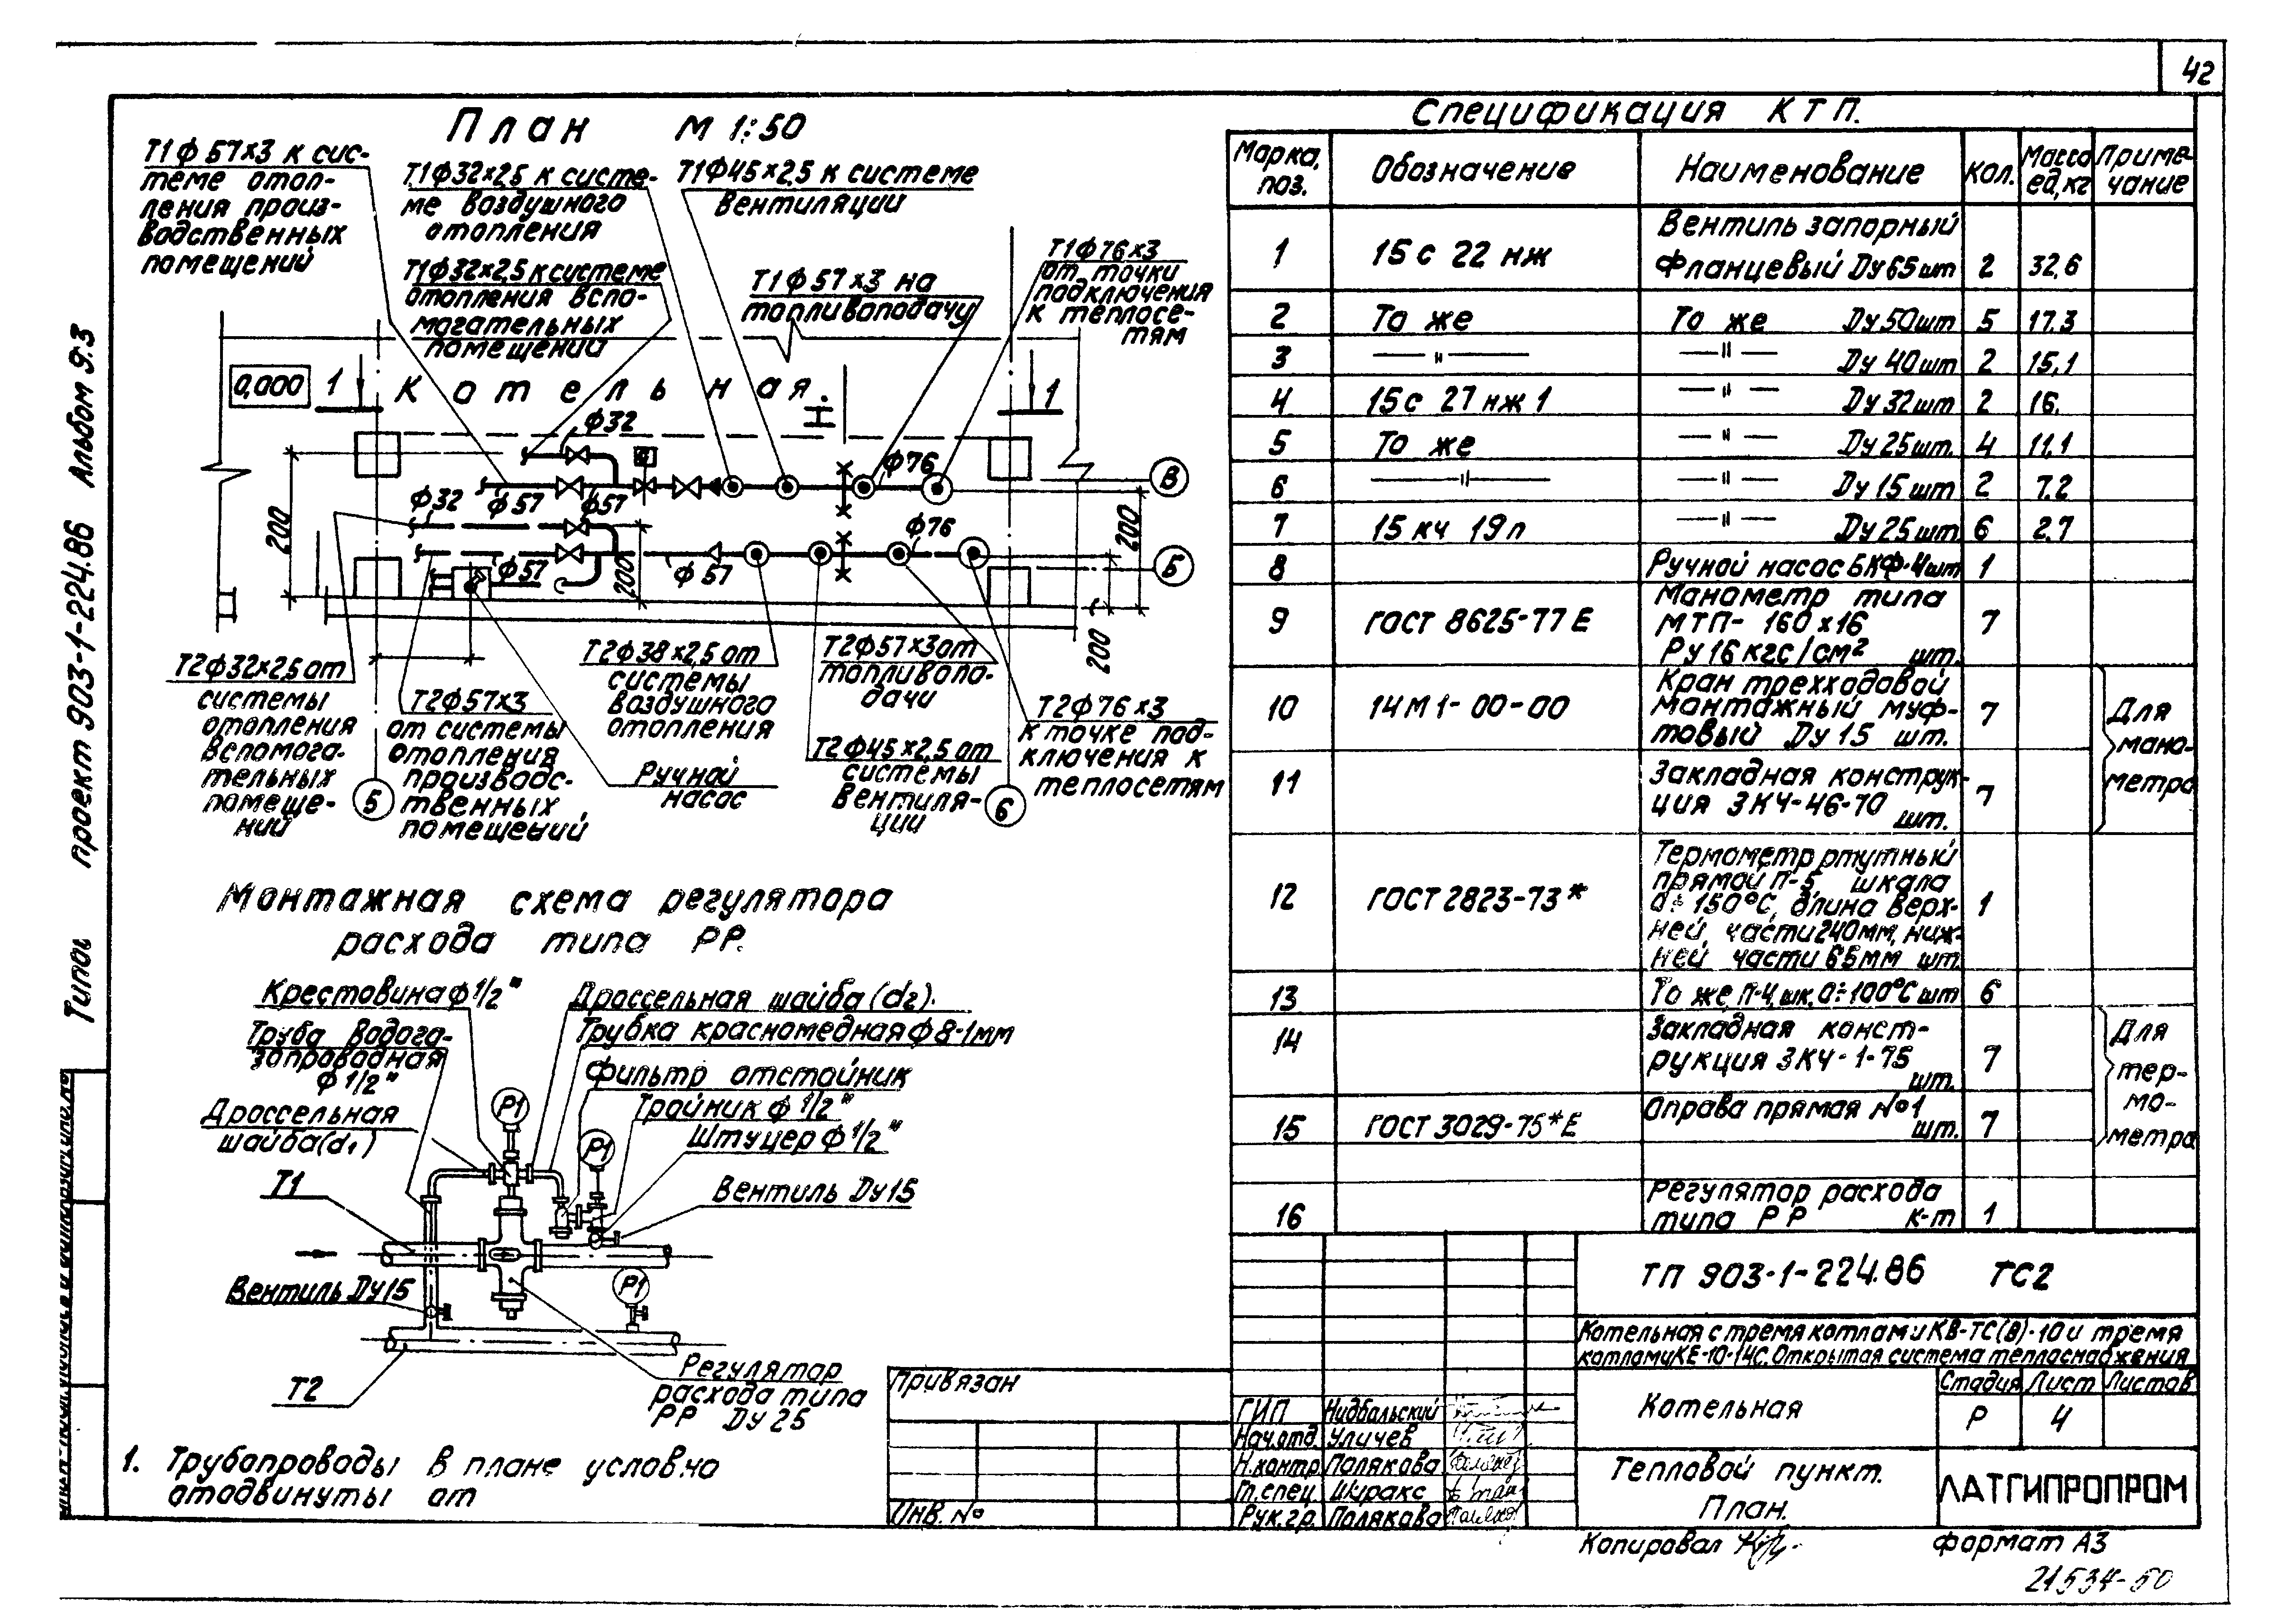 42
План М 1:50
Т1ф57х3 к сис-
теме отоп-
ления произ-
водственных
помещений
Т1ф32х2,5 к систе-
ме воздушного
отопления
Т1ф45х2,5 к системе
вентиляции
Т1ф32х2,5 к системе
отопления вспо-
могательных
помещений
Т1ф57х3 на
топливоподачу
Т1ф76х3
от точки
подключения
к теплосе-
тям
0,000
1
Котельная.
1
ф32
ф76
ф32
ф57
ф57
ф76
ф57
ф57
200
200
200
200
В
Б
Т2ф32х2,5 от
системы
отопления
вспомога-
тельных
помеще-
ний
Т2ф57х3
от системы
отопления
производс-
твенных
помещений
Т2ф38х2,5 от
системы
воздушного
отопления
Ручной
насос
Т2ф57х3 от
топливопо-
дачи
Т2ф45х2,5 от
системы
вентиля-
ции
Т2ф76х3
к точке под-
ключения к
теплосетям
5
6
Монтажная схема регулятора
расхода типа РР.
Крестовина ф1/2"
Труба водога-
зопроводная
ф1/2"
Дроссельная
шайба(d1)
Дроссельная шайба(d2).
Трубка красномедная ф8-1мм
Фильтр отстойник
Тройник ф1/2"
Штуцер ф1/2"
Вентиль Ду15
Р1
Р1
Р1
Т1
Вентиль Ду15
Т2
Регулятор
расхода типа
РР Ду25
1. Трубопроводы в плане условно
отодвинуты от
Спецификация КТП.
Марка, поз. Обозначение Наименование Кол. Масса ед,кг Приме-чание
1 15с 22 нж Вентиль запорный
фланцевый Ду65 шт 2 32,6
2 То же То же Ду50шт 5 17.3
3 —"— —"— Ду40шт 2 15,1
4 15с 27 нж 1 —"— Ду32шт 2 16.
5 То же —"— Ду25шт. 4 11,1
6 —"— —"— Ду15шт 2 7.2
7 15 кч 19п —"— Ду25шт 6 2.7
8 Ручной насос БКФ-4шт 1
9 ГОСТ 8625-77 Е Манометр типа
МТП-160х16
Ру16кгс/см² шт. 7
10 14М1-00-00 Кран трехходовой
монтажный муф-
товый Ду15 шт. 7
11 Закладная конструк-
ция ЗКЧ-46-70
шт. 7
Для
мано-
метра
12 ГОСТ 2823-73* Термометр ртутный
прямой П-5, шкала
0÷150°С, длина верх-
ней части 240мм, ниж-
ней части 65мм шт. 1
13 То же П-4, шк. 0÷100°С шт 6
14 Закладная конст-
рукция ЗКЧ-1-75
шт. 7
15 ГОСТ 3029-75*Е Оправа прямая №1
шт. 7
Для
тер-
мо-
метра
16 Регулятор расхода
типа РР к-т 1
ТП 903-1-224.86 ТС2
Котельная с тремя котлами КВ-ТС(В)-10 и тремя
котлами КЕ-10-14С. Открытая система теплоснабжения
Котельная
Стадия Лист Листов
Р 4
Тепловой пункт.
План.
ЛАТГИПРОПРОМ
Привязан
Инв. №
ГИП Нидбальский
Нач.отд. Уличев
Н.контр Полякова
Гл.спец. Ширакс
Рук.гр. Полякова
Копировал
Формат А3
21534-50
Типов проект 903-1-224.86 Альбом 9.3